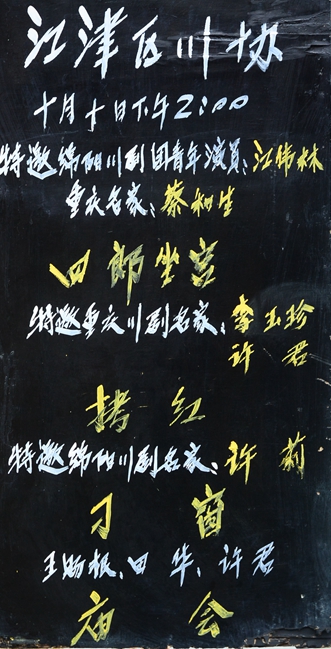 江津区川协
十月十日下午2:00
特邀绵阳川剧团青年演员:江伟林
重庆名家:蔡和生
四郎坐宫
特邀重庆川剧名家:李玉珍
许君
拷红
特邀绵阳川剧名家:许莉
刁窗
王旸根、田华、许君
庙会